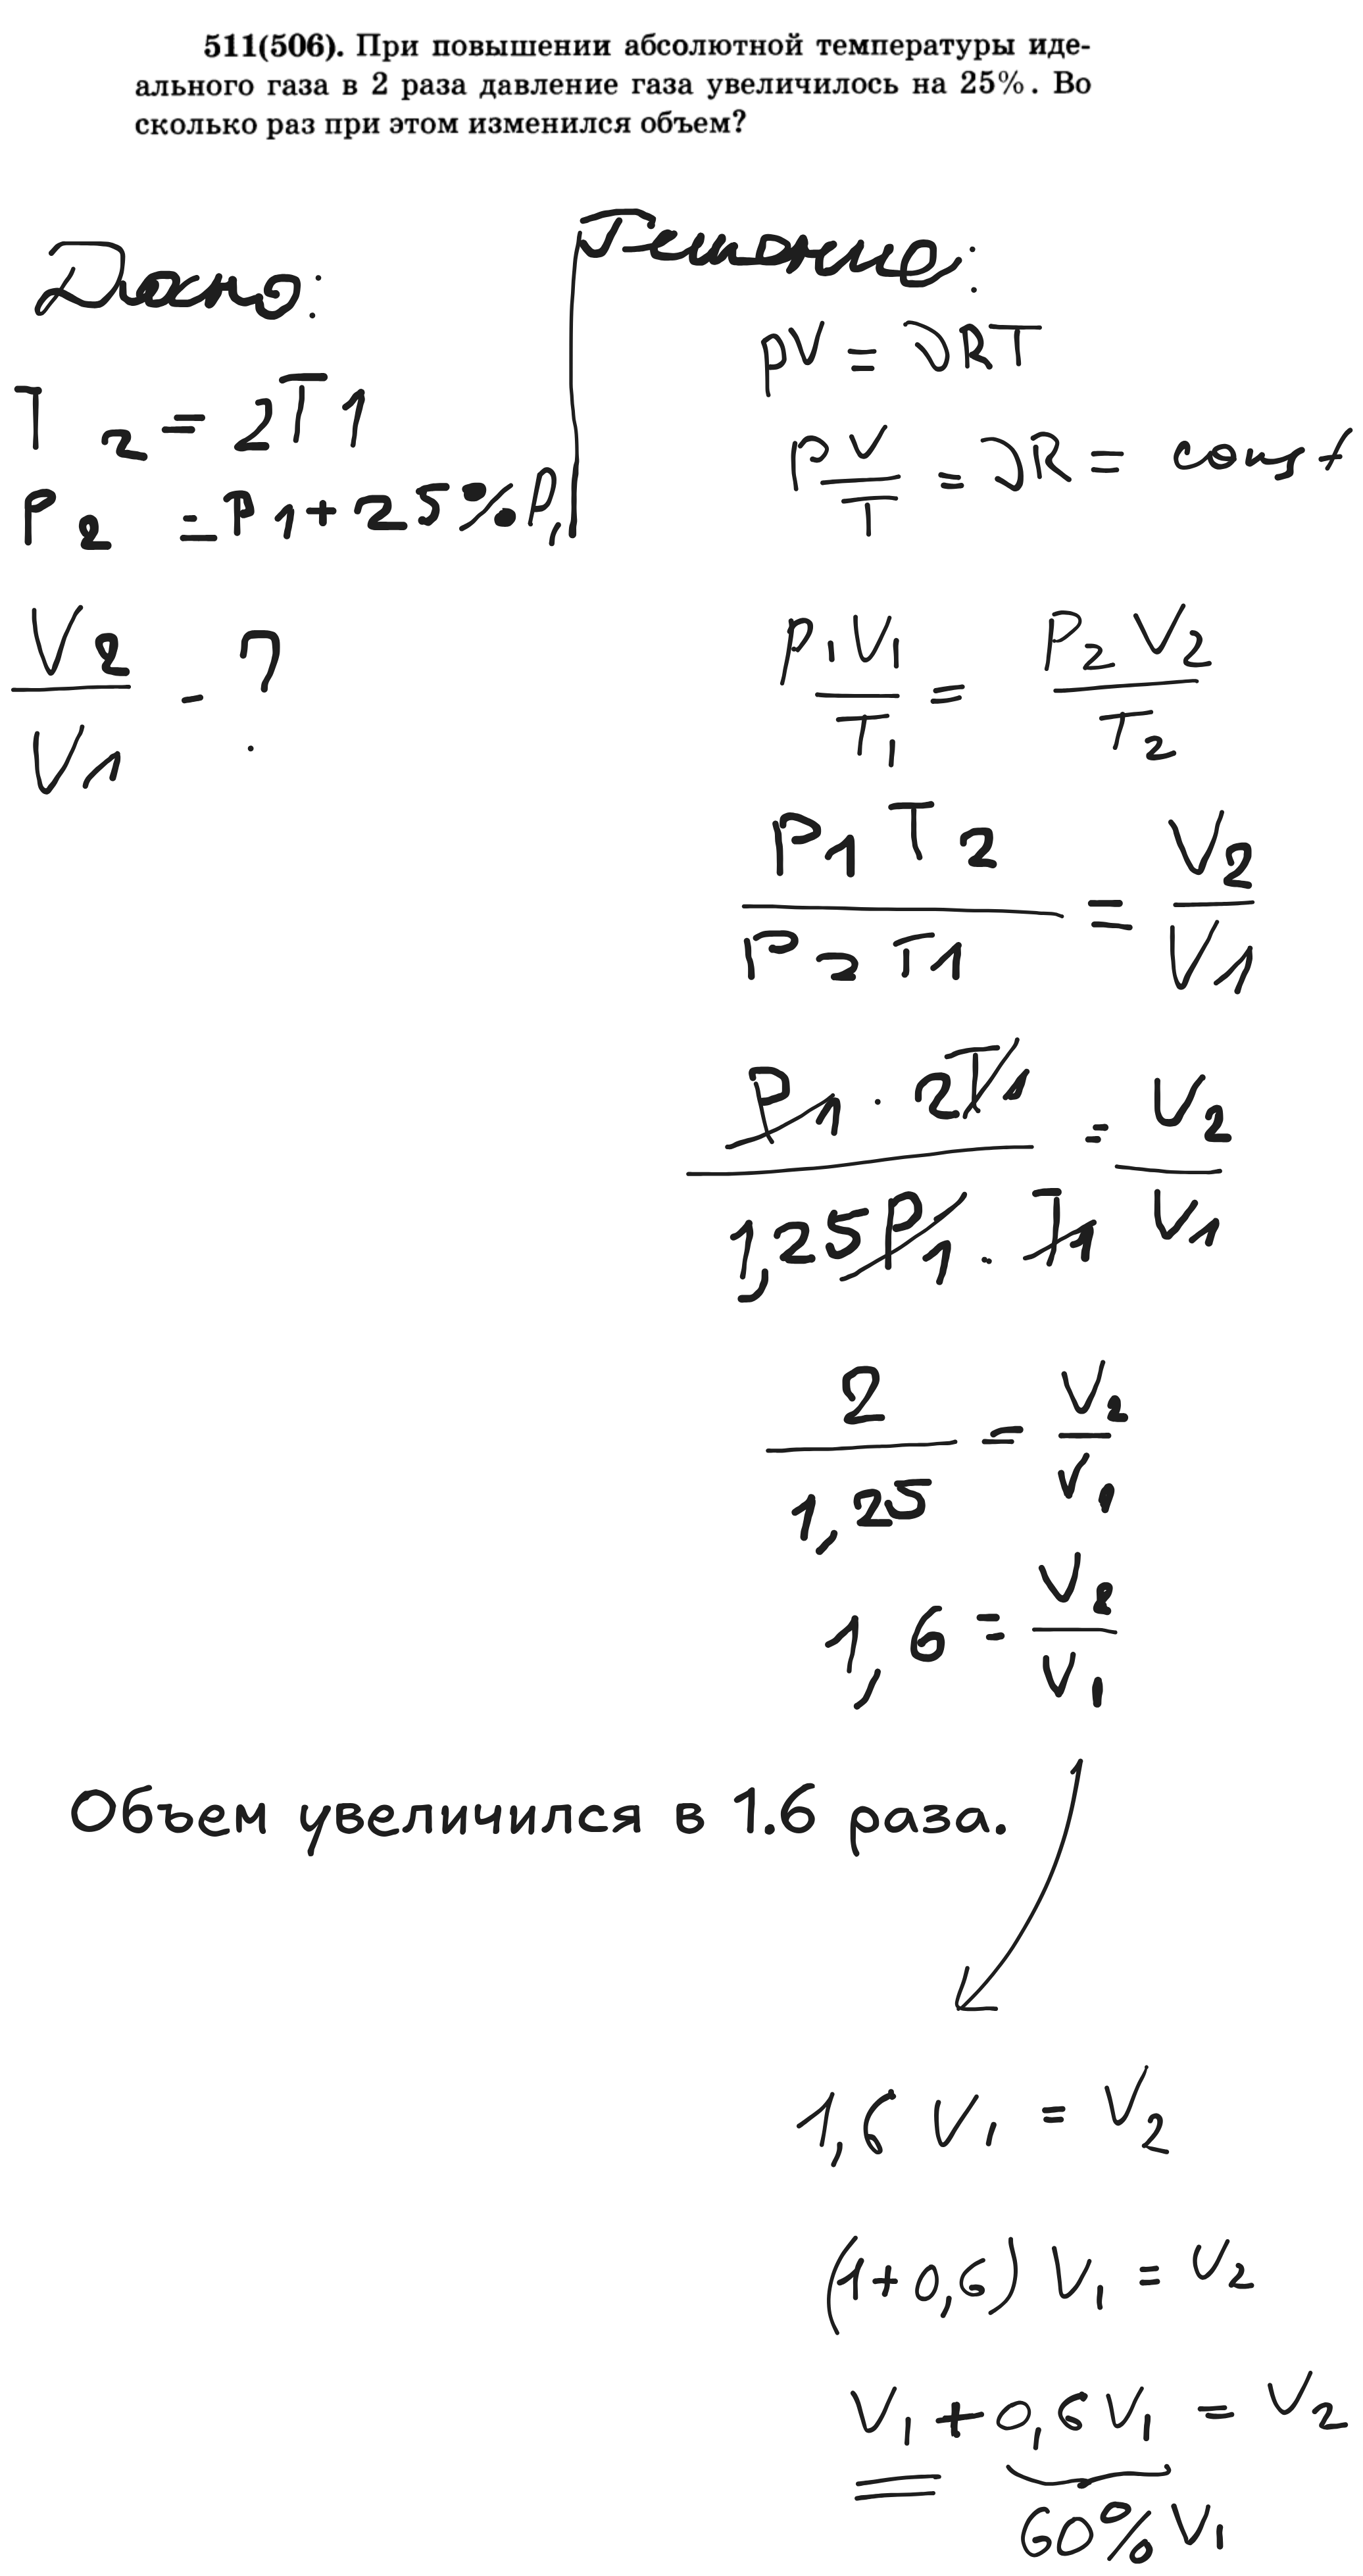 511(506). При повышении абсолютной температуры иде-
ального газа в 2 раза давление газа увеличилось на 25%. Во
сколько раз при этом изменился объем?
Дано:
T2 = 2T1
P2 = P1 + 25% P1
V2/V1 - ?
Решение:
pV = νRT
pV/T = νR = const
p1V1/T1 = P2V2/T2
P1T2/P2T1 = V2/V1
P1 · 2T1/1,25P1 · T1 = V2/V1
2/1,25 = V2/V1
1,6 = V2/V1
Объем увеличился в 1.6 раза.
1,6 V1 = V2
(1+0,6) V1 = V2
V1 + 0,6 V1 = V2
60% V1